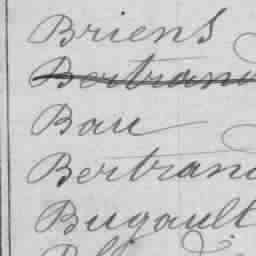 Briens
Bertrand
Bau
Bertrand
Bugault